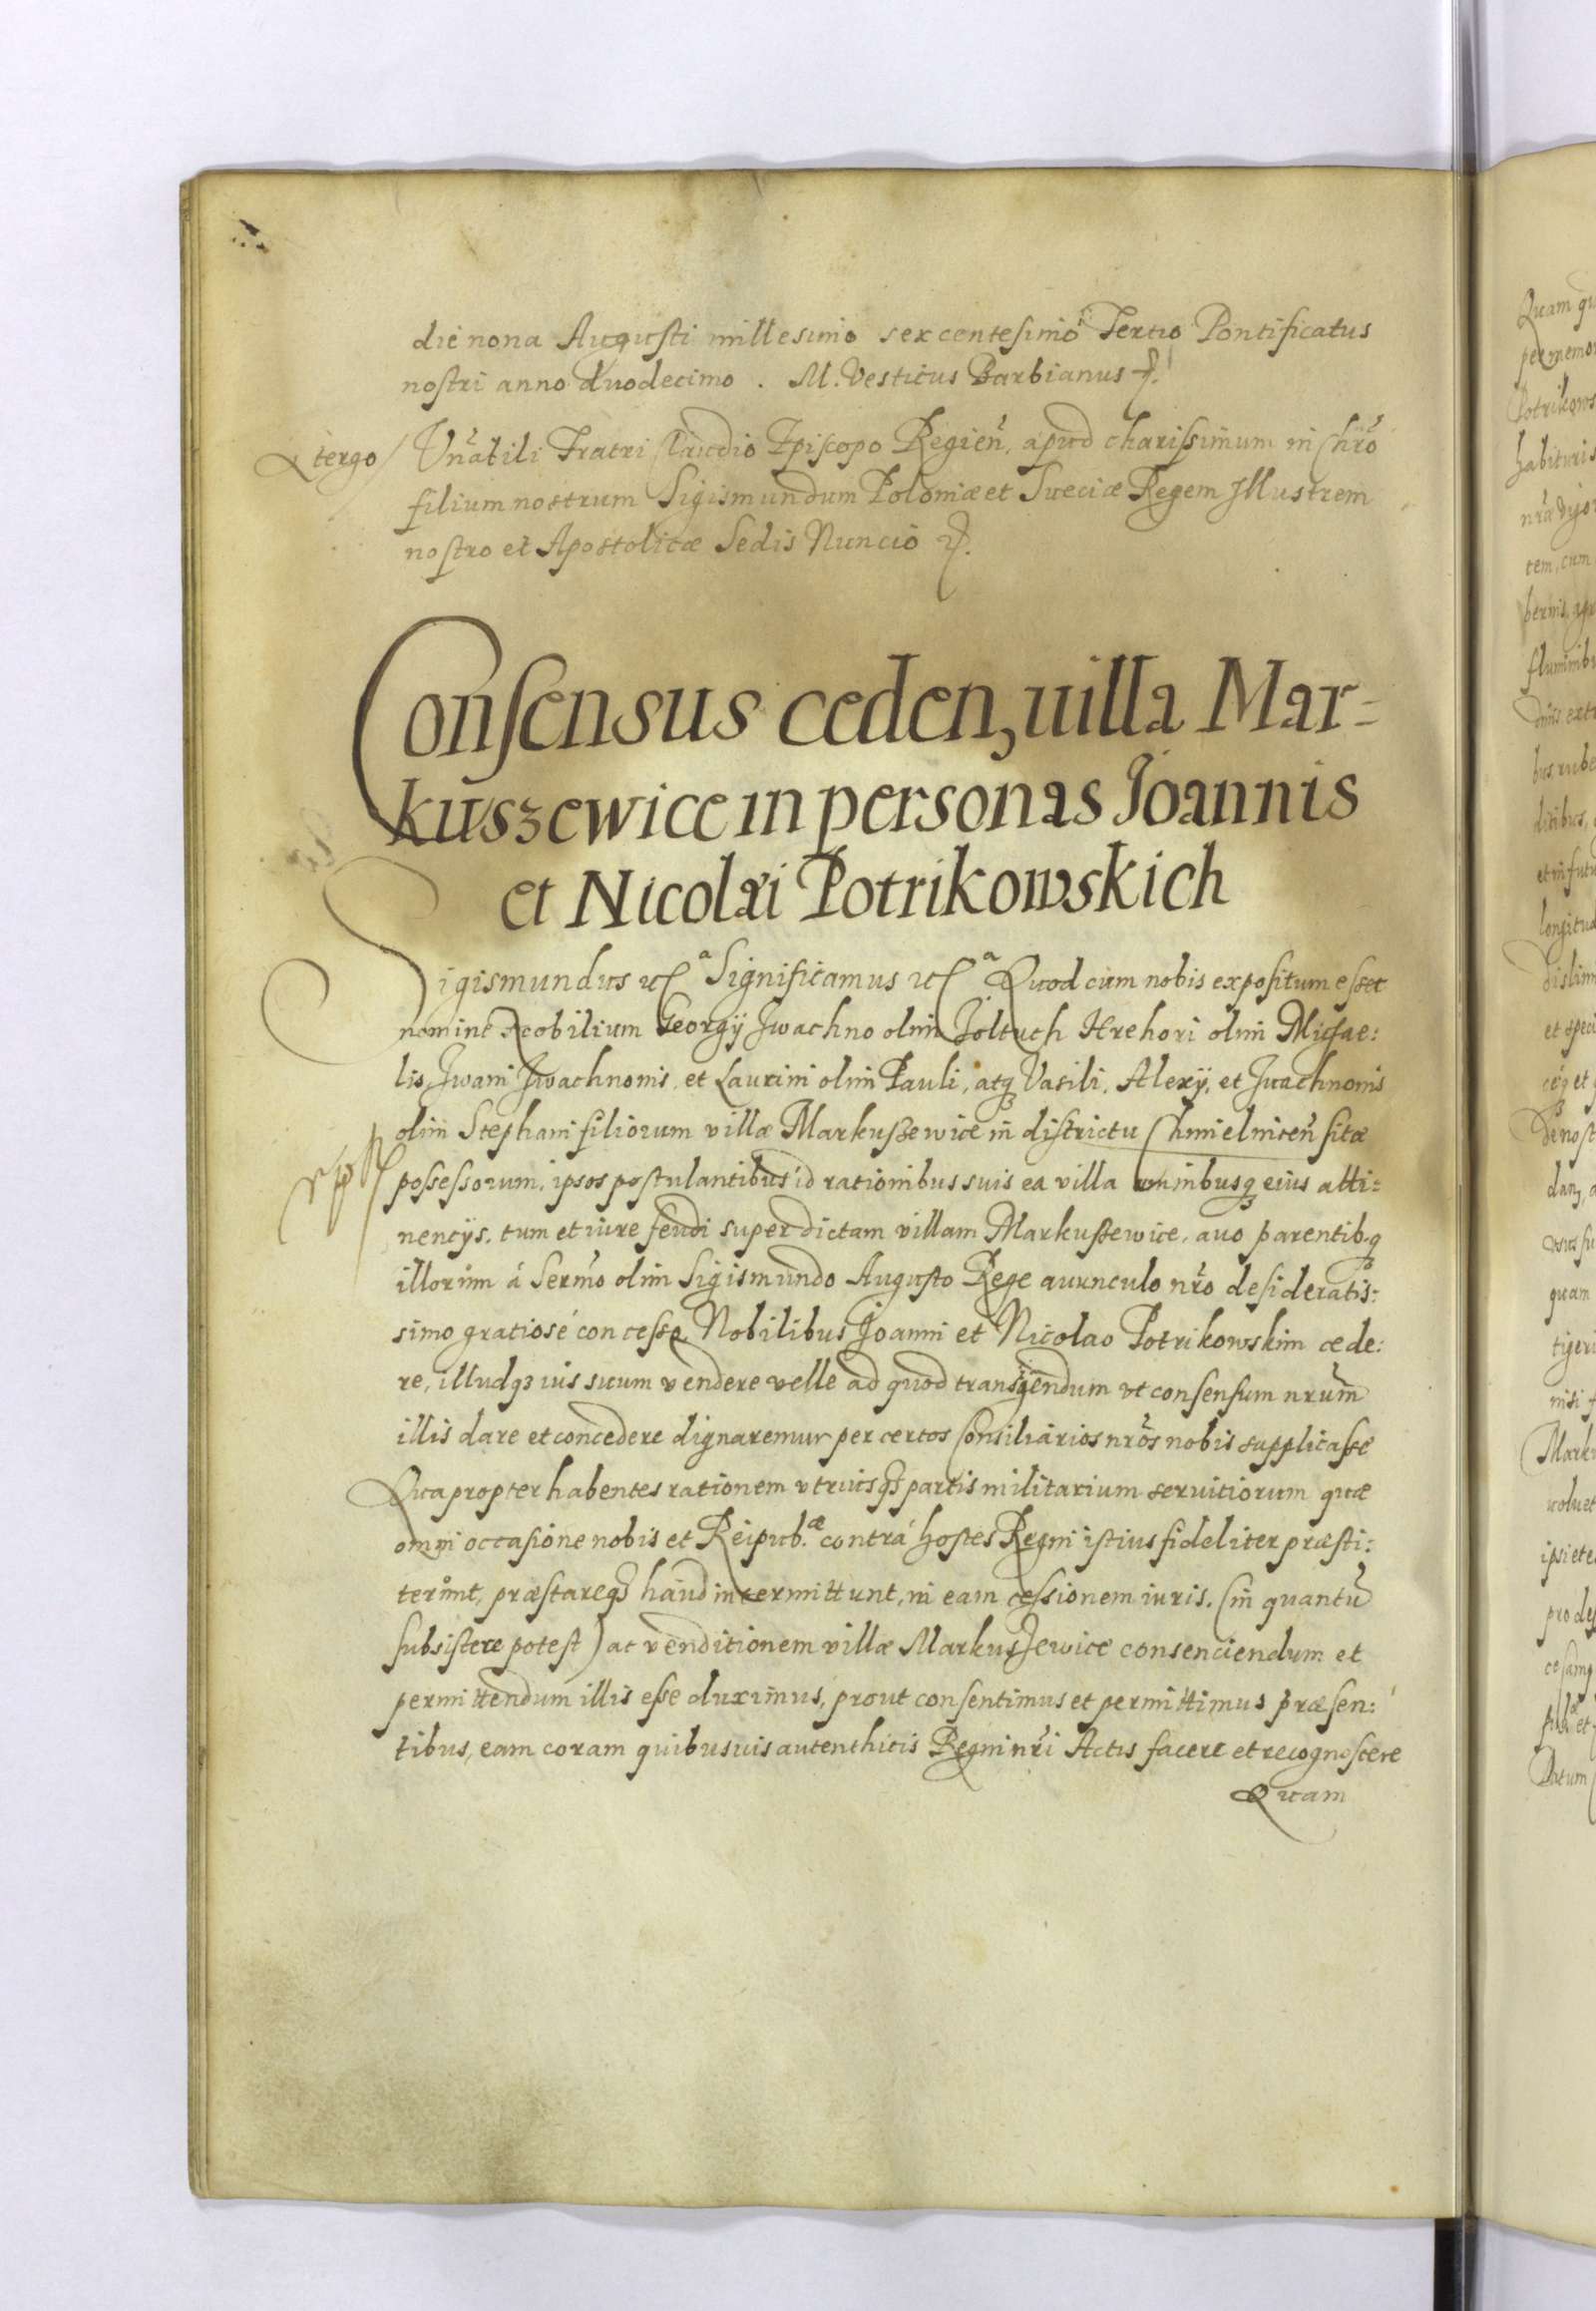 die nona Augusti millesimo sexcentesimo Tertio Pontificatus
nostri anno duodecimo. M. Vestius Barbianus
A tergo / Vn̄abili Fratri Claudio Episcopo Regien̄, apud charissimum in Chr̄o
filium nostrum Sigismundum Poloniæ et Sueciæ Regem Illustrem
nostro et Apostolicæ Sedis Nuncio
Consensus ceden, uilla Mar=
kuszewice in personas Joannis
et Nicolai Potrikowskich
Sigismundus etc a Significamus etc a Quod cum nobis expositum esset
nomine Nobilium Georgÿ Jwachno olim Joltuch Hrehori olim Michae:
lis, Jwani Jwachnonis, et Laurini olim Pauli, atq3 Vasili, Alexÿ, et Jvachnonis
olim Stephani filiorum villæ Markuszewice in districtu Chmielnicen̄ sitæ
possessorum, ipsos postulantibus id rationibus suis ea villa omnibusq3 eius atti:
nencÿs, tum et iure feudi super dictam villam Markuszewice, auo parentib.q3
illorum á Serm̄o olim Sigismundo Augusto Rege auunculo nr̄o desideratis:
simo gratiosé concesso Nobilibus Joanni et Nicolao Potrikowskim cede:
re, illudq3 ius suum vendere velle ad quod transigendum vt consensum nrum̄
illis dare et concedere dignaremur per certos Consiliarios nrōs nobis supplicasse
Quapropter habentes rationem vtriusq3 partis militarium seruitiorum quæ
omni occasione nobis et Reipub.æ contrá hostes Regni istius fideliter præsti:
terunt, præstareq3 haud intermittunt, in eam cessionem iuris, (in quantū
subsistere potest) ac venditionem villæ Markuszewice consenciendum et
permittendum illis esse duximus, prout consentimus et permittimus præsen:
tibus, eam coram quibusuis autenthicis Regni nr̄i Actis facere et recognoscere
Quam